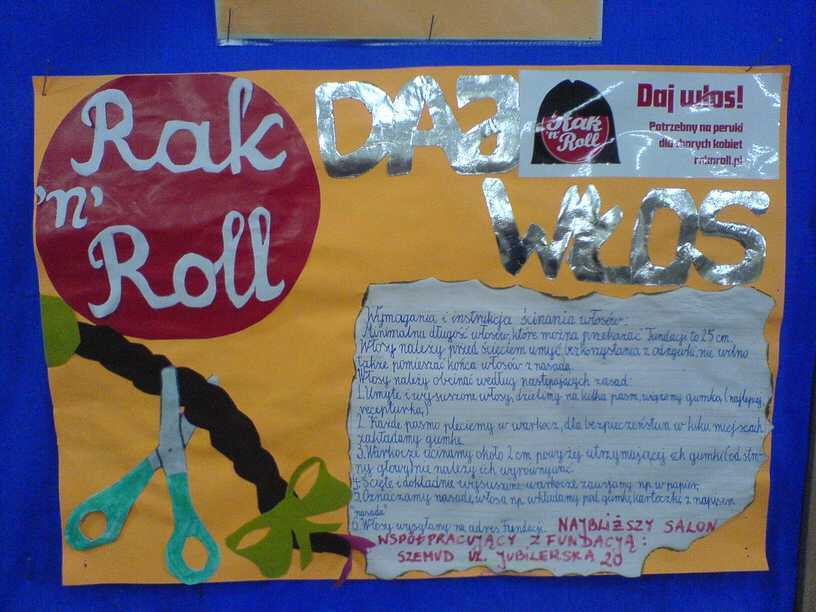 Rak
'n'
Roll
DAJ
WŁOS
Rak
'n'
Roll
Daj włos!
Potrzebny na peruki
dla chorych kobiet
raknroll.pl
Wymagania i instrukcja ścinania włosów:
Minimalna długość włosów, które można przekazać Fundacji to 25 cm.
Włosy należy przed ścięciem umyć bez korzystania z odżywki, nie wolno
także pomieszać końca włosów z nasadą.
Włosy należy obcinać według następujących zasad:
1. Umyte i wysuszone włosy, dzielimy na kilka pasm, wiążemy gumką, (najlepiej
recepturką)
2. Każde pasmo pleciemy w warkocz, dla bezpieczeństwa w kilku miejscach
zakładamy gumkę
3. Warkocze ucinamy około 2 cm powyżej utrzymującej ich gumki (od stro-
ny głowy) nie należy ich wyrównywać.
4. Ścięte i dokładnie wysuszone warkocze zawijamy np. w papier,
5. Oznaczamy nasadę włosa np. wkładamy pod gumkę karteczki z napisem
"nasada"
6. Włosy wysyłamy na adres Fundacji. NAJBLIŻSZY SALON
WSPÓŁPRACUJĄCY Z FUNDACJĄ:
SZEMUD UL. JUBILERSKA 20